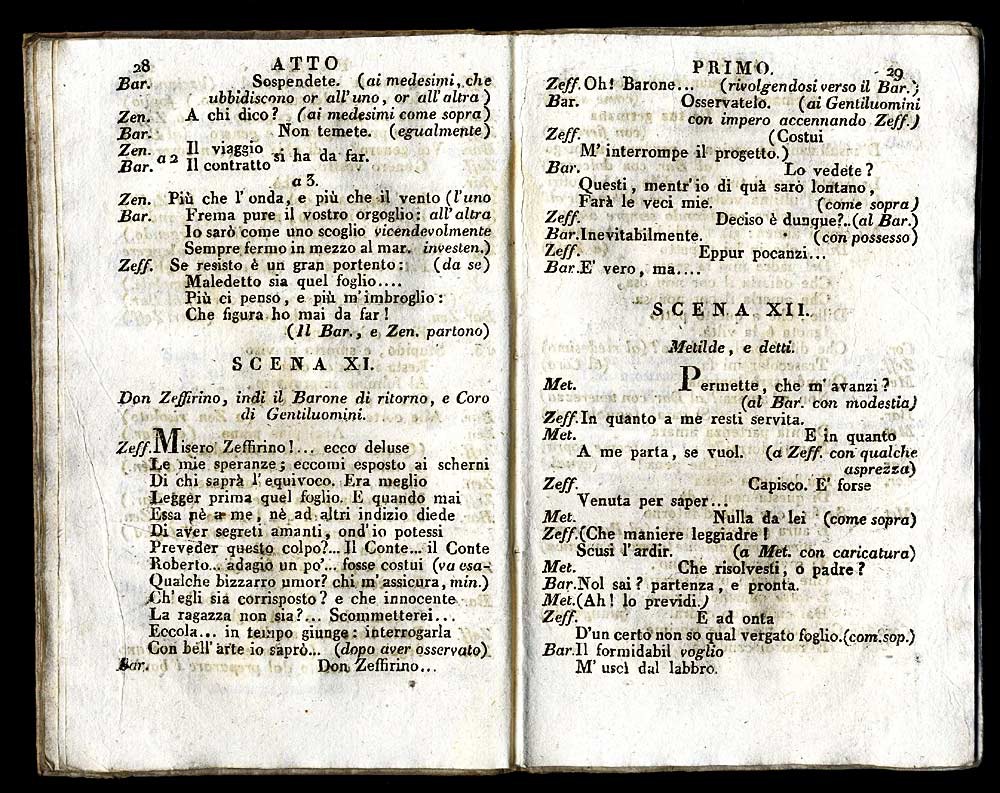 28 ATTO
Bar. Sospendete. (ai medesimi, che
ubbidiscono or all'uno, or all'altra)
Zen. A chi dico? (ai medesimi come sopra)
Bar. Non temete. (egualmente)
Zen. a 2 Il viaggio si ha da far.
Bar. Il contratto
a 3.
Zen. Più che l'onda, e più che il vento (l'uno
Bar. Frema pure il vostro orgoglio: all'altra
Io sarò come uno scoglio vicendevolmente
Sempre fermo in mezzo al mar. investen.)
Zeff. Se resisto è un gran portento: (da se)
Maledetto sia quel foglio....
Più ci penso, e più m'imbroglio:
Che figura ho mai da far!
(Il Bar., e Zen. partono)
SCENA XI.
Don Zeffirino, indi il Barone di ritorno, e Coro
di Gentiluomini.
Zeff. Misero Zeffirino!... ecco deluse
Le mie speranze; eccomi esposto ai scherni
Di chi saprà l'equivoco. Era meglio
Legger prima quel foglio. E quando mai
Essa nè a me, nè ad altri indizio diede
Di aver segreti amanti, ond'io potessi
Preveder questo colpo?... Il Conte... il Conte
Roberto... adagio un po'... fosse costui (va esa-
Qualche bizzarro umor? chi m'assicura, min.)
Ch'egli sia corrisposto? e che innocente
La ragazza non sia?... Scommetterei...
Eccola... in tempo giunge: interrogarla
Con bell'arte io saprò... (dopo aver osservato)
Bar. Don Zeffirino...
PRIMO. 29
Zeff. Oh! Barone... (rivolgendosi verso il Bar.)
Bar. Osservatelo. (ai Gentiluomini
con impero accennando Zeff.)
Zeff. (Costui
M'interrompe il progetto.)
Bar. Lo vedete?
Questi, mentr'io di quà sarò lontano,
Farà le veci mie. (come sopra)
Zeff. Deciso è dunque?.. (al Bar.)
Bar. Inevitabilmente. (con possesso)
Zeff. Eppur pocanzi...
Bar. E' vero, ma....
SCENA XII.
Metilde, e detti.
Met. Permette, che m'avanzi?
(al Bar. con modestia)
Zeff. In quanto a me resti servita.
Met. E in quanto
A me parta, se vuol. (a Zeff. con qualche
asprezza)
Zeff. Capisco. E' forse
Venuta per saper...
Met. Nulla da lei (come sopra)
Zeff. (Che maniere leggiadre!
Scusi l'ardir. (a Met. con caricatura)
Met. Che risolvesti, o padre?
Bar. Nol sai? partenza, e pronta.
Met. (Ah! lo previdi.)
Zeff. E ad onta
D'un certo non so qual vergato foglio. (com. sop.)
Bar. Il formidabil voglio
M'uscì dal labbro.